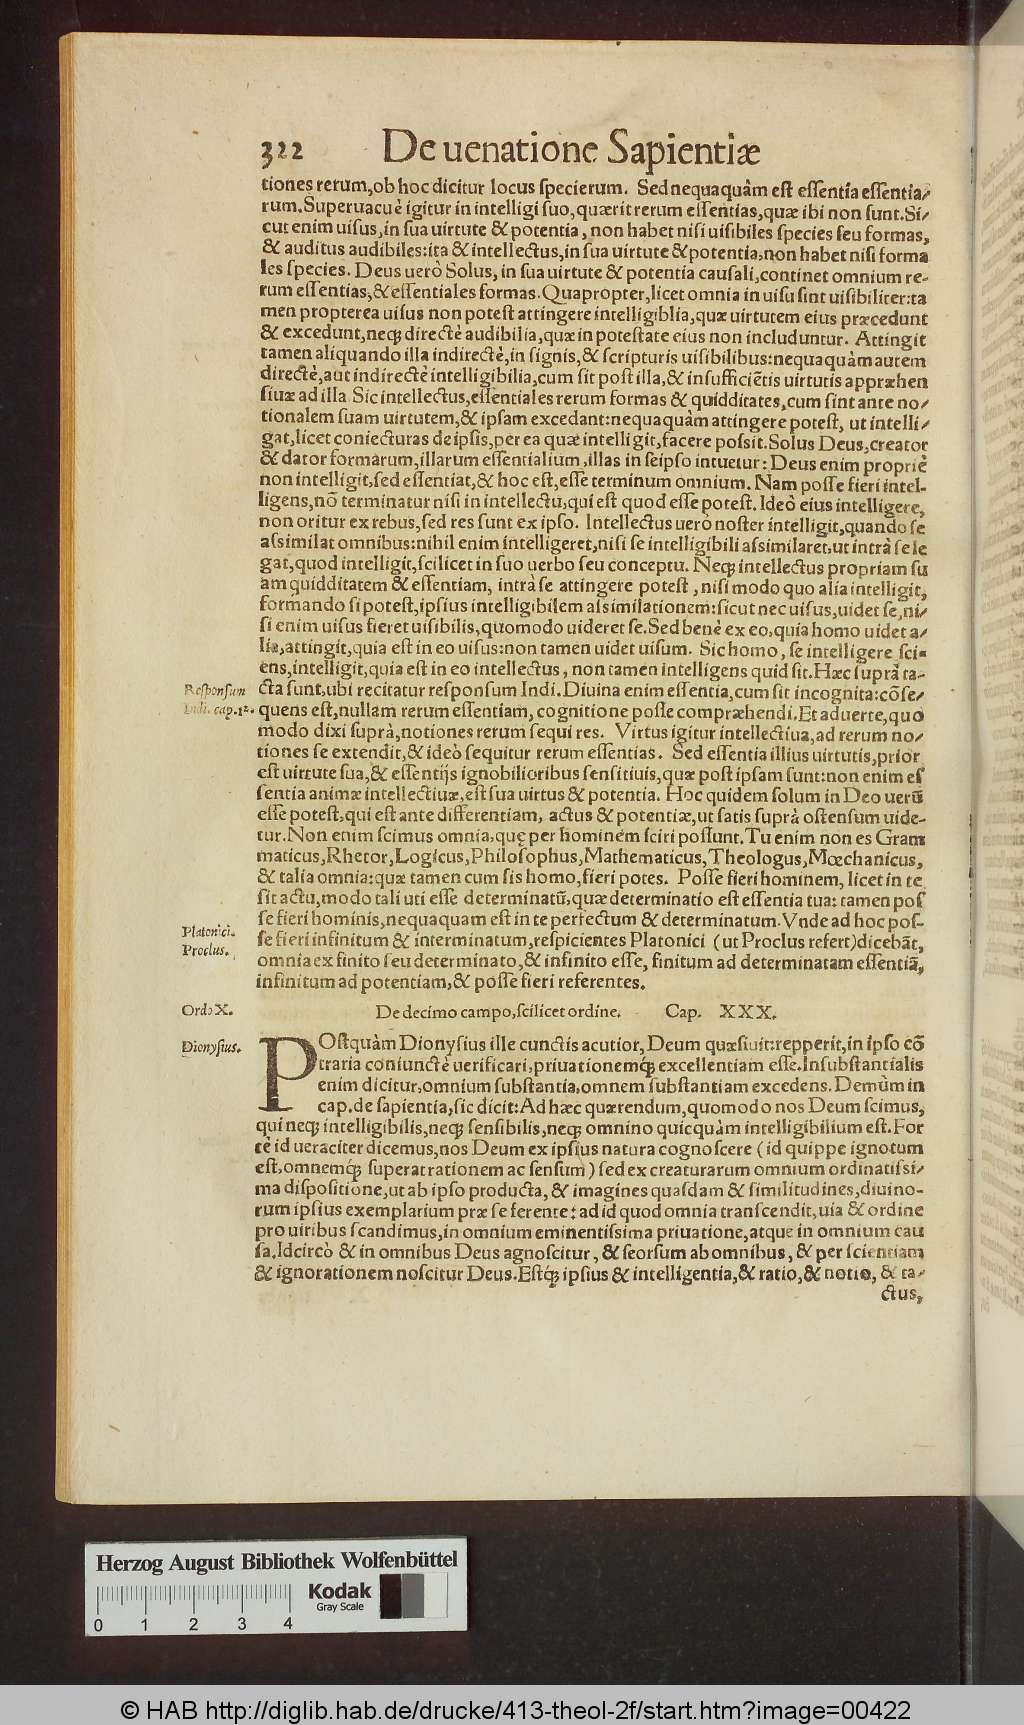 322 De uenatione Sapientiæ
tiones rerum,ob hoc dicitur locus specierum. Sed nequaquàm est essentia essentia/
rum.Superuacuè igitur in intelligi suo,quærit rerum essentias,quæ ibi non sunt.Si/
cut enim uisus,in sua uirtute & potentia, non habet nisi uisibiles species seu formas,
& auditus audibiles:ita & intellectus,in sua uirtute & potentia,non habet nisi forma
les species. Deus uerò Solus, in sua uirtute & potentia causali,continet omnium re-
rum essentias,& essentiales formas.Quapropter,licet omnia in uisu sint uisibiliter:ta
men propterea uisus non potest attingere intelligiblia,quæ uirtutem eius præcedunt
& excedunt,neqꝫ directè audibilia,quæ in potestate eius non includuntur. Attingit
tamen aliquando illa indirectè,in signis,& scripturis uisibilibus:nequaquàm autem
directè,aut indirectè intelligibilia,cum sit post illa,& insufficiẽtis uirtutis appræhen
siuæ ad illa Sic intellectus,essentiales rerum formas & quidditates,cum sint ante no/
tionalem suam uirtutem,& ipsam excedant:nequaquàm attingere potest, ut intelli/
gat,licet coniecturas de ipsis,per ea quæ intelligit,facere possit.Solus Deus,creator
& dator formarum,illarum essentialium,illas in seipso intuetur: Deus enim propriè
non intelligit,sed essentiat,& hoc est,esse terminum omnium. Nam posse fieri intel-
ligens,nõ terminatur nisi in intellectu,qui est quod esse potest.Ideò eius intelligere,
non oritur ex rebus,sed res sunt ex ipso. Intellectus uerò noster intelligit,quando se
assimilat omnibus:nihil enim intelligeret,nisi se intelligibili assimilaret,ut intrà se le
gat,quod intelligit,scilicet in suo uerbo seu conceptu. Neqꝫ intellectus propriam su
am quidditatem & essentiam, intrà se attingere potest, nisi modo quo alia intelligit,
formando si potest,ipsius intelligibilem assimilationem:sicut nec uisus,uidet se,ni/
si enim uisus fieret uisibilis,quomodo uideret se.Sed benè ex eo,quia homo uidet a/
lia,attingit,quia est in eo uisus:non tamen uidet uisum. Sic homo, se intelligere sci-
ens,intelligit,quia est in eo intellectus, non tamen intelligens quid sit.Hæc suprà ta-
Responsum
Indi. cap.12.
cta sunt,ubi recitatur responsum Indi.Diuina enim essentia,cum sit incognita:cõse/
quens est,nullam rerum essentiam, cognitione posse compræhendi.Et aduerte,quo
modo dixi suprà,notiones rerum sequi res. Virtus igitur intellectiua,ad rerum no/
tiones se extendit,& ideò sequitur rerum essentias. Sed essentia illius uirtutis,prior
est uirtute sua,& essentijs ignobilioribus sensitiuis,quæ post ipsam sunt:non enim es
sentia animæ intellectiuæ,est sua uirtus & potentia. Hoc quidem solum in Deo uerũ
esse potest,qui est ante differentiam, actus & potentiæ,ut satis suprà ostensum uide-
tur.Non enim scimus omnia,quę per hominem sciri possunt.Tu enim non es Gram
maticus,Rhetor,Logicus,Philosophus,Mathematicus,Theologus,Mœchanicus,
& talia omnia:quæ tamen cum sis homo,fieri potes. Posse fieri hominem, licet in te
sit actu,modo tali uti esse determinatũ,quæ determinatio est essentia tua: tamen pos
se fieri hominis,nequaquam est in te perfectum & determinatum.Vnde ad hoc pos-
Platonici.
Proclus.
se fieri infinitum & interminatum,respicientes Platonici (ut Proclus refert)dicebãt,
omnia ex finito seu determinato,& infinito esse, finitum ad determinatam essentiã,
infinitum ad potentiam,& posse fieri referentes.
Ordo X. De decimo campo,scilicet ordine. Cap. XXX.
Dionysius.
POstquàm Dionysius ille cunctis acutior, Deum quæsiuit:repperit,in ipso cõ
traria coniunctè uerificari,priuationemqꝫ excellentiam esse.Insubstantialis
enim dicitur,omnium substantia,omnem substantiam excedens.Demùm in
cap.de sapientia,sic dicit:Ad hæc quærendum,quomodo nos Deum scimus,
qui neqꝫ intelligibilis,neqꝫ sensibilis,neqꝫ omnino quicquàm intelligibilium est.For
tè id ueraciter dicemus,nos Deum ex ipsius natura cognoscere (id quippe ignotum
est,omnemqꝫ superat rationem ac sensum) sed ex creaturarum omnium ordinatissi/
ma dispositione,ut ab ipso producta, & imagines quasdam & similitudines,diuino-
rum ipsius exemplarium præ se ferente: ad id quod omnia transcendit,uia & ordine
pro uiribus scandimus,in omnium eminentissima priuatione,atque in omnium cau
sa.Idcircò & in omnibus Deus agnoscitur, & seorsum ab omnibus, & per scientiam
& ignorationem noscitur Deus.Estqꝫ ipsius & intelligentia,& ratio,& notio, & ta-
ctus,
Herzog August Bibliothek Wolfenbüttel
Kodak
Gray Scale
0 1 2 3 4
© HAB http://diglib.hab.de/drucke/413-theol-2f/start.htm?image=00422